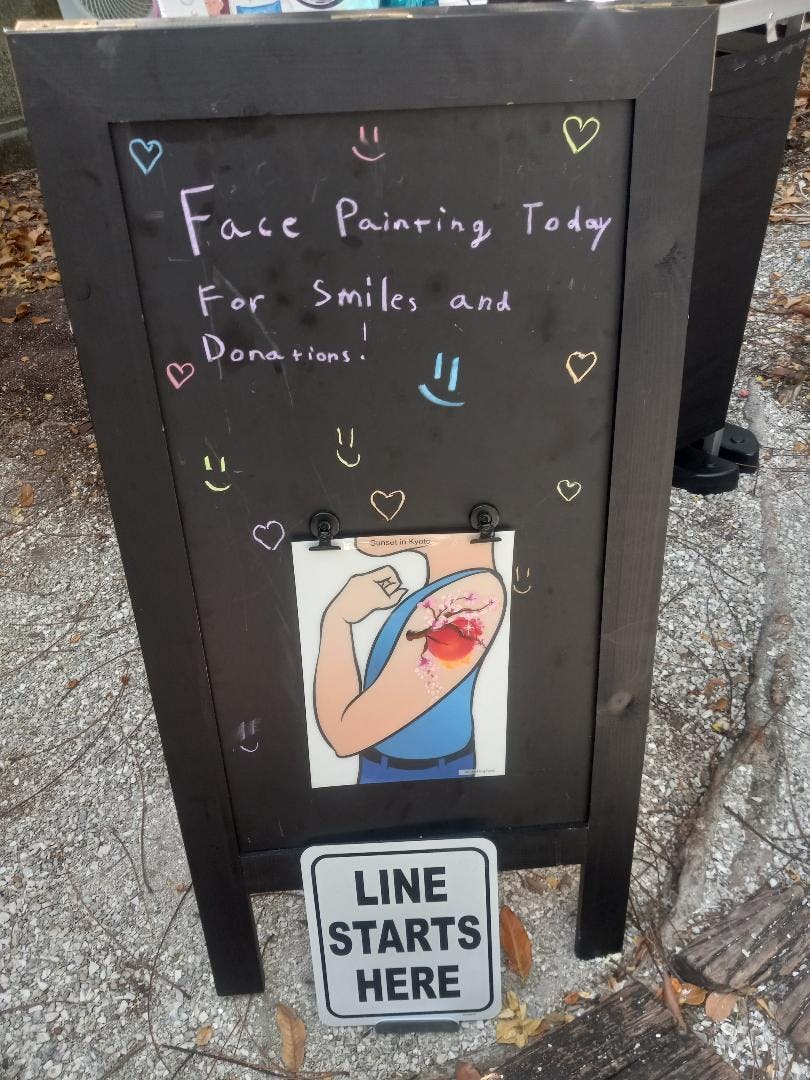 Face Painting Today
For Smiles and
Donations!
Sunset in Kyoto
LINE
STARTS
HERE